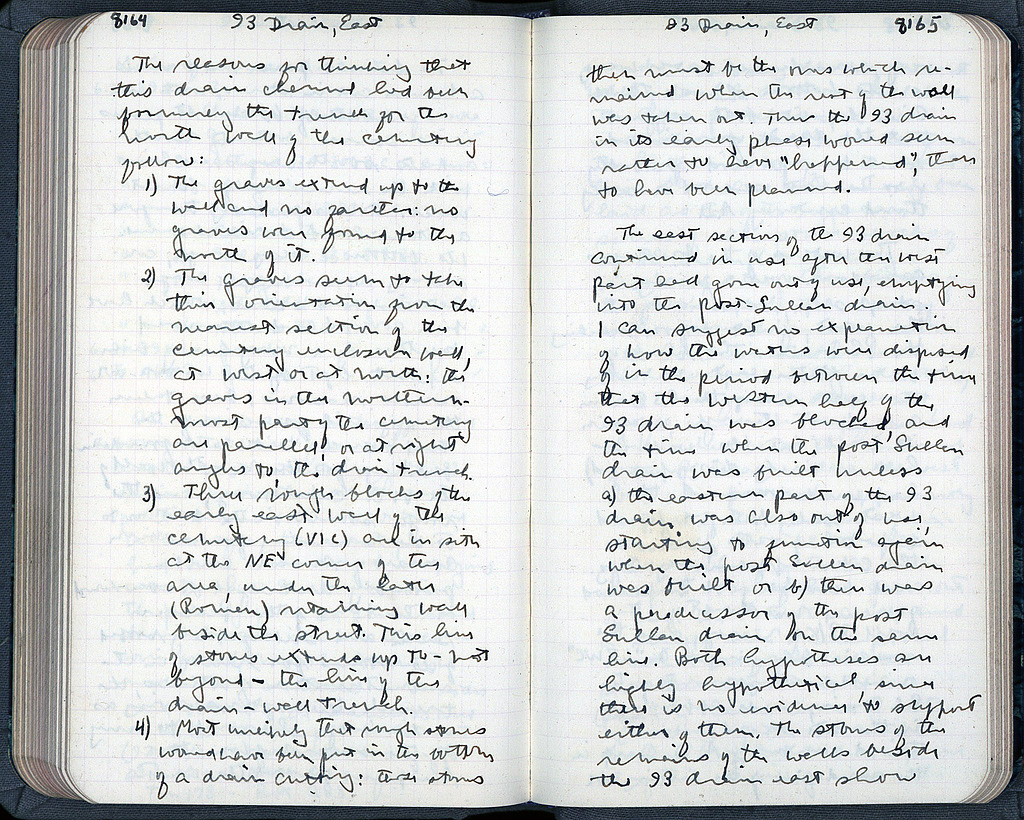 8164 93 Drain, East
The reasons for thinking that
this drain channel had been
formerly the trench for the
north wall of the cemetery
follow:
1) The graves extend up to the
wall and no farther: no
graves were found to the
north of it.
2) The graves seem to take
their orientation from the
nearest section of the
cemetery enclosure wall,
at west or at north: the
graves in the northern-
most part of the cemetery
are parallel, or at right
angles to, the drain trench.
3) Three rough blocks of the
early east wall of the
cemetery (VIC) are in situ
at the NE corner of the
area, under the later
(Roman) retaining wall
beside the street. This line
of stones extends up to - not
beyond - the line of the
drain-wall trench.
4) Most unlikely that rough stones
would have been put in the bottom
of a drain cutting: these stones
93 Drain, East 8165
then must be the ones which re-
mained when the rest of the wall
was taken out. Thus the 93 drain
in its early phase would seem
rather to have "happened", than
to have been planned.
The east section of the 93 drain
continued in use after the west
part had gone out of use, emptying
into the post-Sullan drain.
I can suggest no explanation
of how the waters were disposed
of in the period between the time
that the western half of the
93 drain was blocked, and
the time when the post Sullan
drain was built unless
a) the eastern part of the 93
drain was also out of use,
starting to function again
when the post Sullan drain
was built or b) there was
a predecessor of the post
Sullan drain on the same
line. Both hypotheses are
highly hypothetical, since
there is no evidence to support
either of them. The stones of the
remains of the walls beside
the 93 drain east show